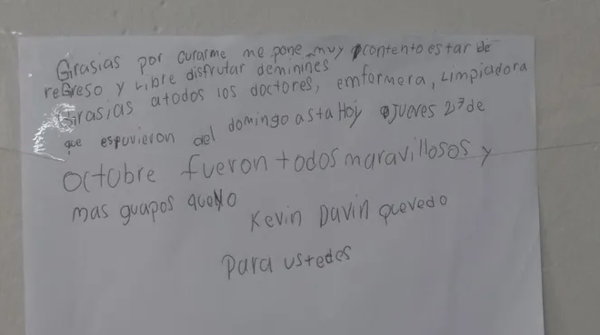 Grasias por curarme me pone muy contento estar de
regreso y Libre disfrutar de minines
Grasias atodos los doctores, emfermera, Limpiadora
que espuvieron del domingo asta Hoy Jueves 23 de
octubre fueron todos maravillosos y
mas guapos que yo
Kevin Davin quevedo
para ustedes